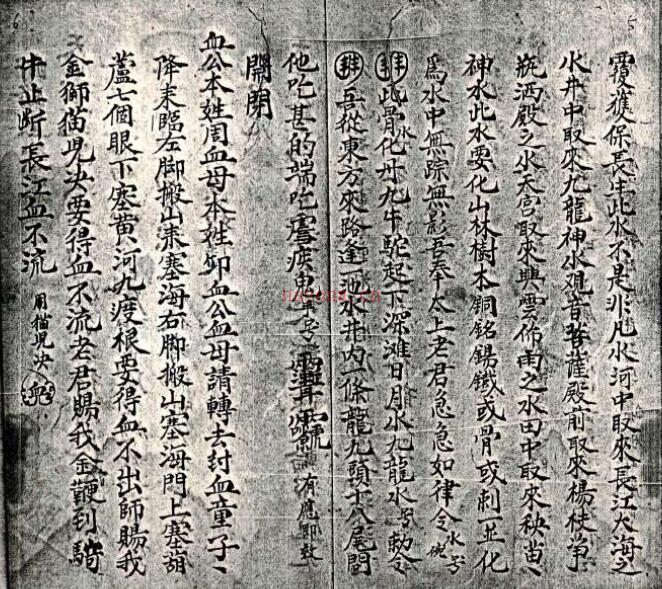 5
6
靈獲保長生此水不是非凡水河中取來長江大海之
水井中取來九龍神水观音菩薩殿前取來楊枝净
瓶洒殿之水天宫取來興雲佈雨之水田中取來秧苗丶
神水此水要化山林樹木銅鉛錫鐵或骨或刺一並化
為水中無踪無影吾奉太上老君急急如律令 水碗
此骨化丹九牛駝起下深灘日月水九龍水 勅令
吾從東方來路逢一池水井内一條龍九頭十八尾問
他吃甚的端吃瘧疾鬼 有應即教
開閉
血公本姓周血母本姓卯血公血母請轉去封血童子丶
降來臨左脚搬山來塞海右脚搬山塞海門上塞葫
蘆七個眼下塞黄河九渡根要得血不出師賜我
金獅猫児决要得血不流老君賜我金鞭到騎
牛止断長江血不流 用猫児决